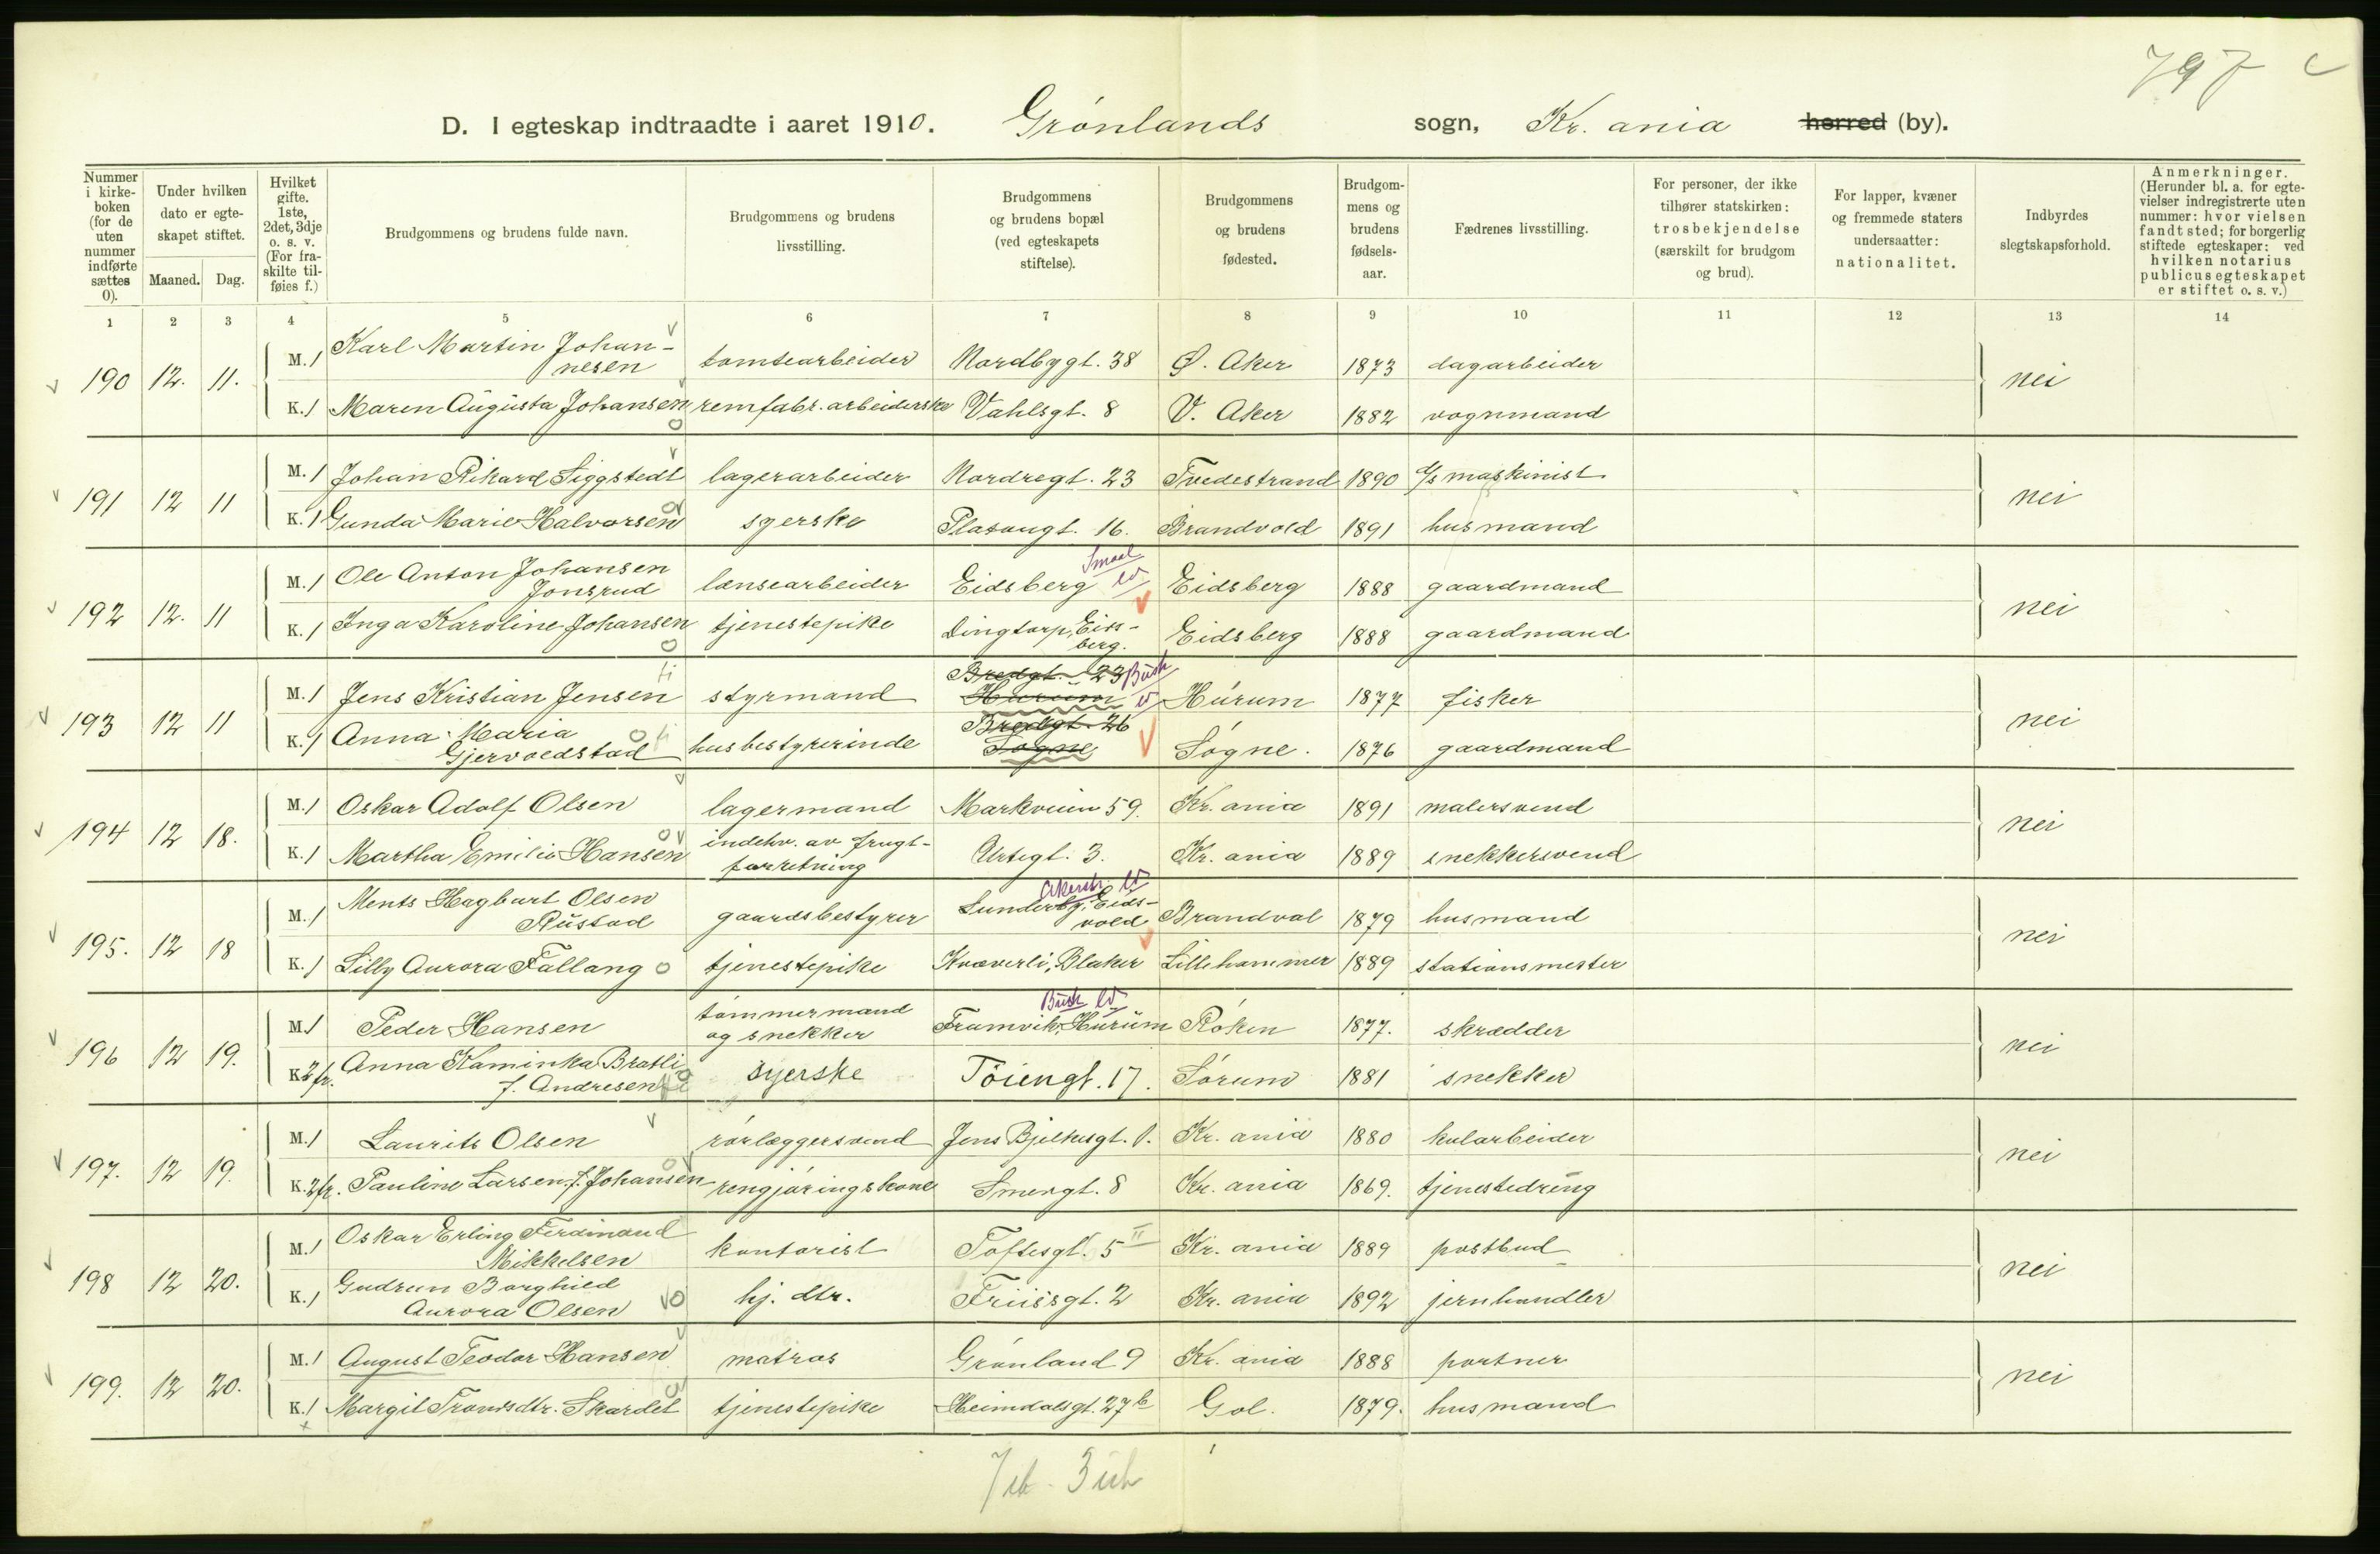 797 c
D. I egteskap indtraadte i aaret 1910. Grønlands sogn, Kr. ania herred (by).
Nummer i kirkeboken (for de uten nummer indførte sættes 0).
Under hvilken dato er egteskapet stiftet.
Maaned. Dag.
Hvilket gifte. 1ste, 2det, 3dje o. s. v. (For fraskilte tilføies f.)
Brudgommens og brudens fulde navn.
Brudgommens og brudens livsstilling.
Brudgommens og brudens bopæl (ved egteskapets stiftelse).
Brudgommens og brudens fødested.
Brudgommens og brudens fødselsaar.
Fædrenes livsstilling.
For personer, der ikke tilhører statskirken: trosbekjendelse (særskilt for brudgom og brud).
For lapper, kvæner og fremmede staters undersaatter: nationalitet.
Indbyrdes slegtskapsforhold.
Anmerkninger. (Herunder bl. a. for egtevielser indregistrerte uten nummer: hvor vielsen fandt sted; for borgerlig stiftede egteskaper: ved hvilken notarius publicus egteskapet er stiftet o. s. v.)
1 2 3 4 5 6 7 8 9 10 11 12 13 14
190 12. 11. M. 1 Karl Martin Johannesen tomtearbeider Nordbygt. 38 Ø. Aker 1873 dagarbeider nei
K. 1 Maren Augusta Johansen remfabr. arbeiderske Vahlsgt. 8 V. Aker 1882 vognmand
191 12 11 M. 1 Johan Rikard Siggstedt lagerarbeider Nordregt. 23 Tvedestrand 1890 maskinist nei
K. 1 Gunda Marie Halvorsen syerske Platougt. 16. Brandvold 1891 husmand
192 12. 11 M. 1 Ole Anton Johansen Jonsrud lænsearbeider Eidsberg Smaal Eidsberg 1888 gaardmand nei
K. 1 Inga Karoline Johansen tjenestepike Dingtorp, Eidsberg. Eidsberg 1888 gaardmand
193 12 11 M. 1 Jens Kristian Jensen styrmand Bredgt. 23 Hurum Busk Hurum 1877 fisker nei
K. 1 Anna Maria Gjervoldstad husbestyrerinde Bredgt. 26 Søgne Søgne. 1876 gaardmand
194 12 18. M. 1 Oskar Adolf Olsen lagermand Markveien 59. Kr. ania 1891 malersvend nei
K. 1 Martha Emilie Hansen indehv. av frugtforretning Urtegt. 3. Kr. ania 1889 snekkersvend
195. 12 18 M. 1 Ments Hagbart Olsen Rustad gaardsbestyrer Sunderby, Eidsvold Akersh. Brandval 1879 husmand nei
K. 1 Lilly Aurora Fallang tjenestepike Kværerli, Blaker Lillehammer 1889 stationsmester
196 12 19. M. 1 Peder Hansen tømmermand og snekker Framvik, Hurum Busk Røken 1877. skrædder nei
K. 2 fr. Anna Kaminka Bratli f. Andresen syerske Tøiengt. 17. Sørum 1881 snekker
197. 12 19. M. 1 Laurits Olsen rørlæggersvend Jens Bjelkesgt. 1. Kr. ania 1880 kularbeider nei
K. 2 fr. Pauline Larsen f. Johansen rengjøringskone Smengt. 8 Kr. ania 1869. tjenestedreng
198 12 20. M. 1 Oskar Erling Ferdinand Mikkelsen kontorist Toftesgt. 5 II Kr. ania 1889 postbud nei
K. 1 Gudrun Borghild Aurora Olsen hj. dtr. Friisgt. 2 Kr. ania 1892 jernhandler
199. 12 20. M. 1 August Teodor Hansen matros Grønland 9 Kr. ania 1888 portner nei
K. 1 Margit Trondsdtr. Skardet tjenestepike Heimdalsgt. 27 b Gol. 1879. husmand